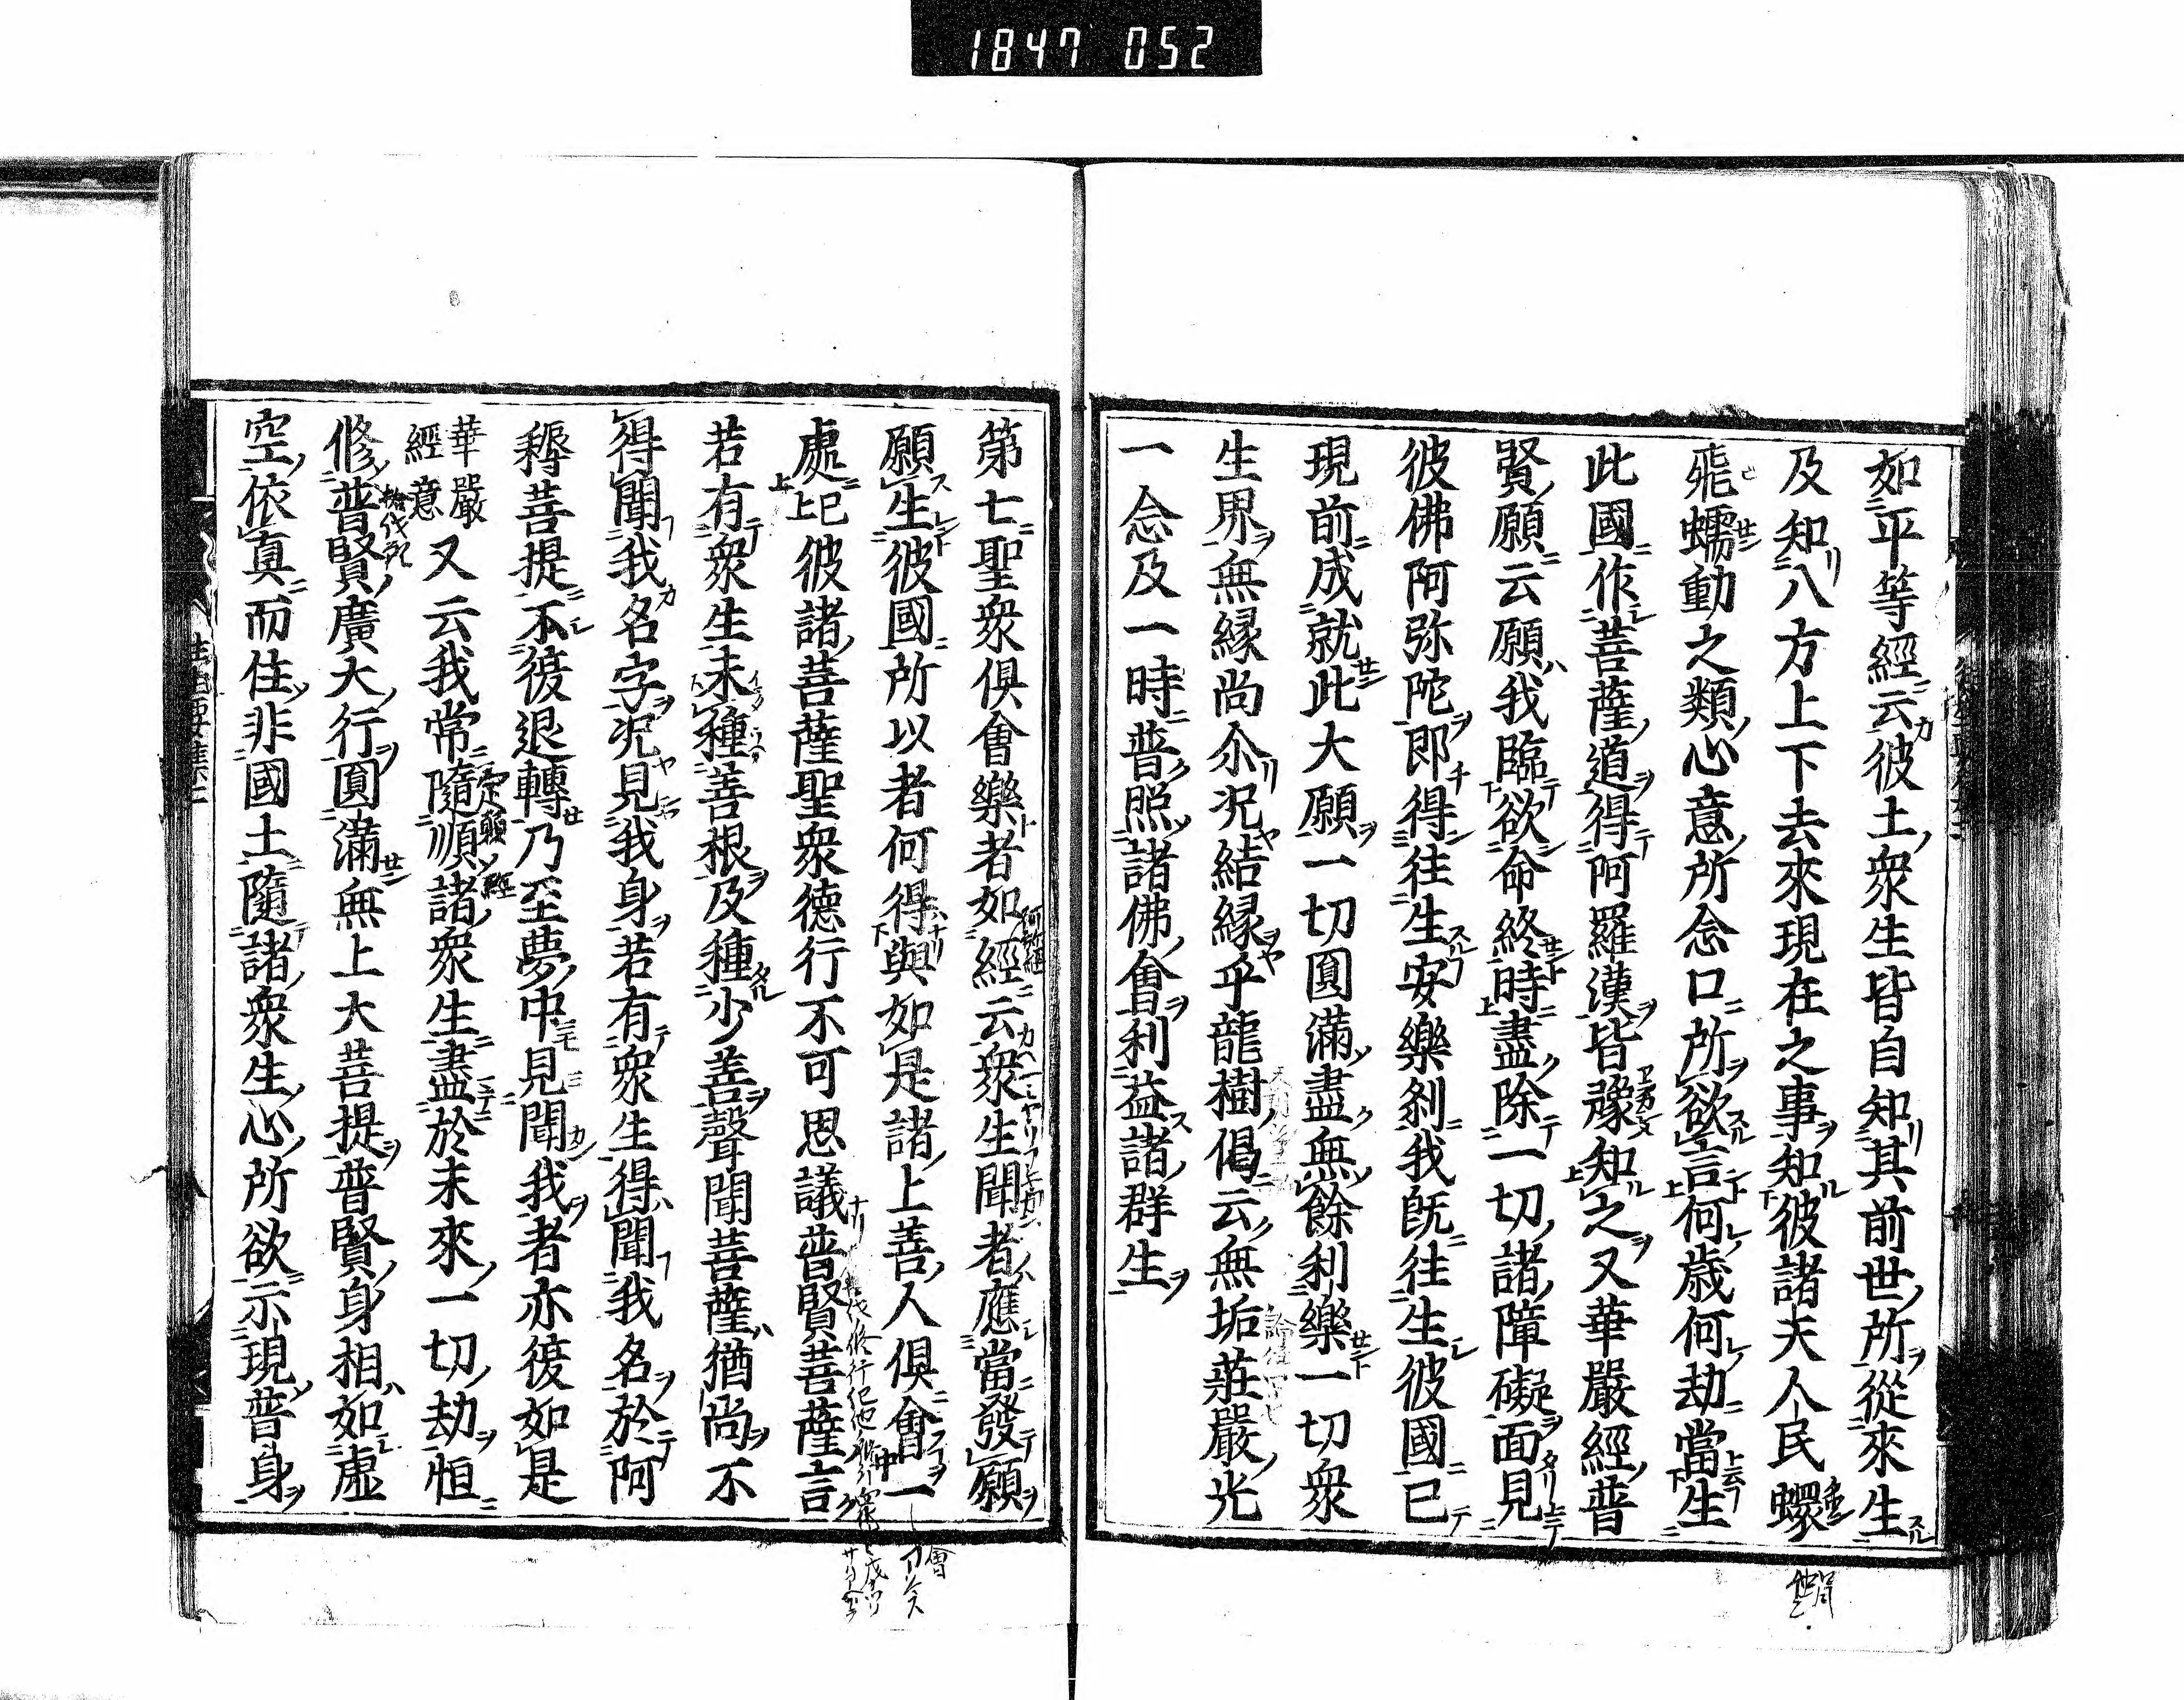 1847 052
如平等經云彼土衆生皆自知其前世所從來生
及知八方上下去來現在之事知彼諸天人民蠉
飛蠕動之類心意所念口所欲言何歲何劫當生
此國作菩薩道得阿羅漢皆豫知之又華嚴經普
賢願云願我臨欲命終時盡除一切諸障礙面見
彼佛阿弥陀即得往生安樂刹我既往生彼國已
現前成就此大願一切圓滿盡無餘利樂一切衆
生界無縁尚尒况結縁乎龍樹偈云無垢莊嚴光
一念及一時普照諸佛會利益諸群生
第七聖衆俱會樂者如經云衆生聞者應當發願
願生彼國所以者何得與如是諸上善人俱會一
處已上彼諸菩薩聖衆德行不可思議普賢菩薩言
若有衆生未種善根及種少善聲聞菩薩猶尚不
得聞我名字况見我身若有衆生得聞我名於阿
耨菩提不復退轉乃至夢中見聞我者亦復如是
華嚴經意又云我常隨順諸衆生盡於未來一切劫恒
修普賢廣大行圓滿無上大菩提普賢身相如虛
空依真而住非國土隨諸衆生心所欲示現普身